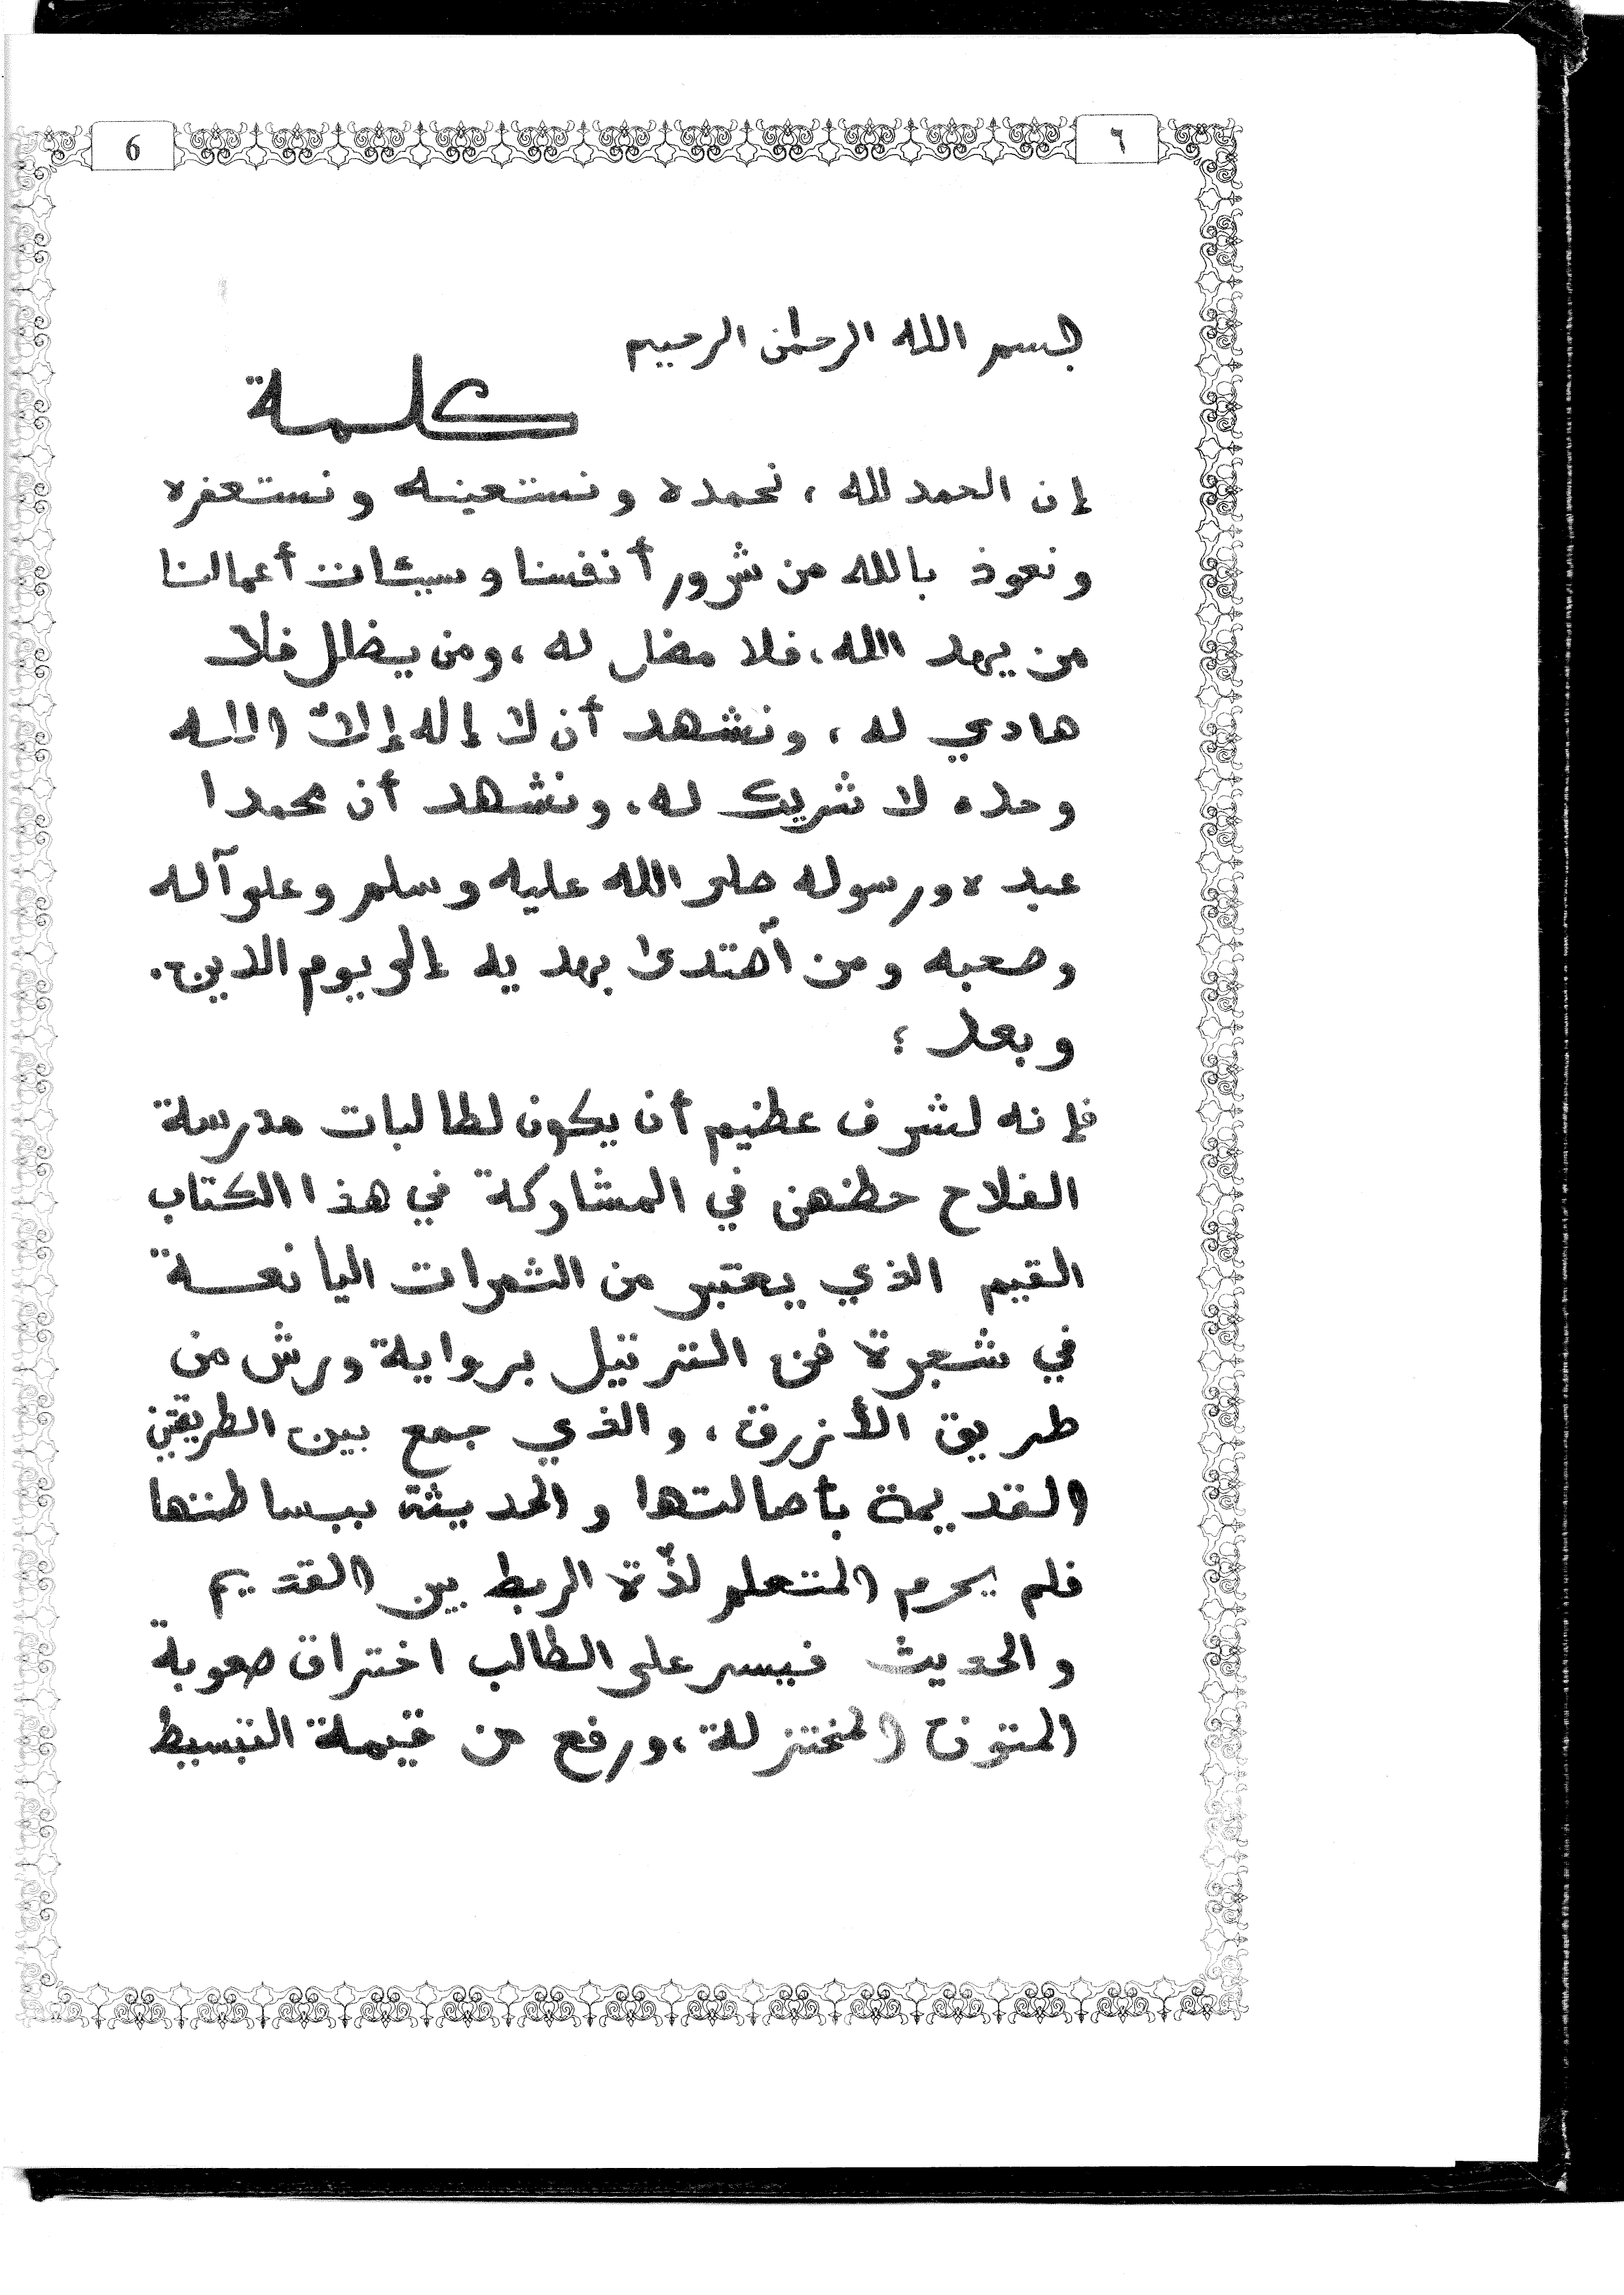 ٦
6
بسم الله الرحمٰن الرحيم
كلمة
إن الحمد لله ، نحمده ونستعينه ونستغفره
ونعوذ بالله من شرور أنفسنا وسيئات أعمالنا
من يهد الله، فلا مضل له ، ومن يضلل فلا
هادي له ، ونشهد أن لا إله إلا الله
وحده لا شريك له، ونشهد أن محمدا
عبده ورسوله صلى الله عليه وسلم وعلى آله
وصحبه ومن اهتدى بهديه إلى يوم الدين.
وبعد ؛
فإنه لشرف عظيم أن يكون لطالبات مدرسة
الفلاح حظهن في المشاركة في هذا الكتاب
القيم الذي يعتبر من الثمرات اليانعة
في شجرة فن الترتيل برواية ورش من
طريق الأزرق ، والذي جمع بين الطريقتين
القديمة بأصالتها والحديثة ببساطتها
فلم يحرم المتعلم لذّة الربط بين القديم
والحديث فيسر على الطالب اختراق صعوبة
المتون المختزلة ، ورفع من قيمة التبسيط